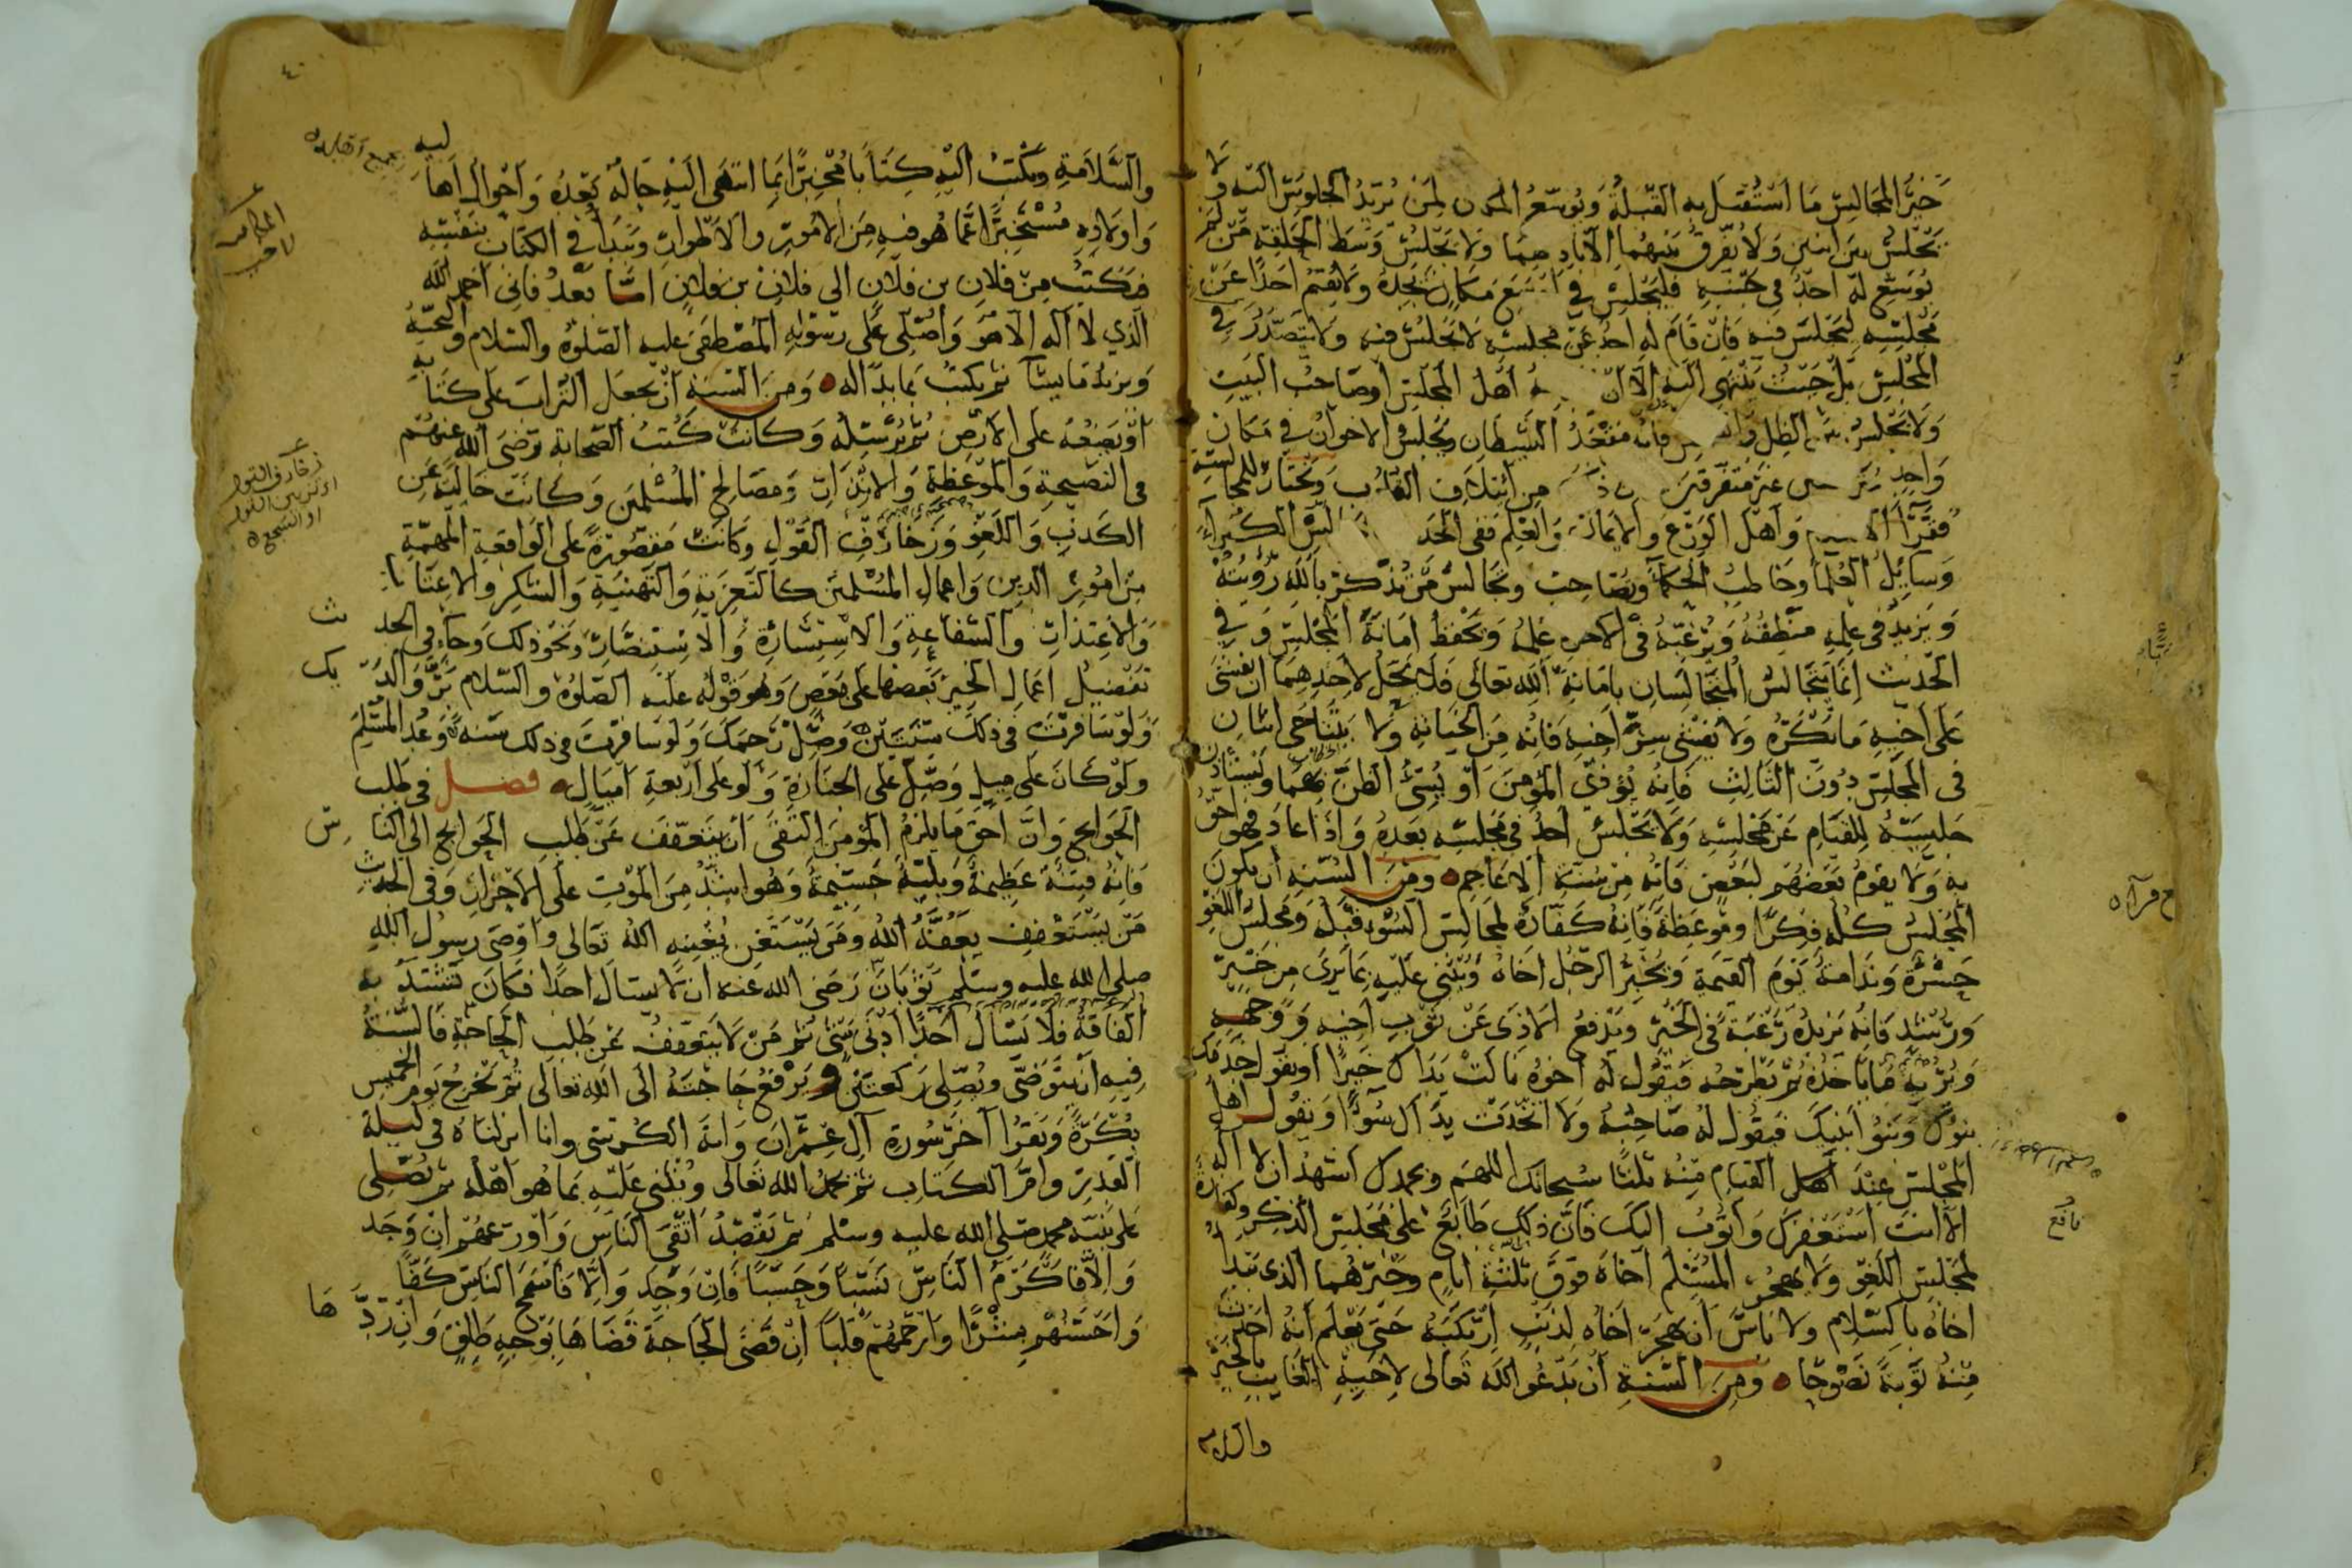 خير المجالس ما استقبل به القبلة ويوسع المكان لمن يريد الجلوس اليه ولا
يجلس بين اثنين ولا يفرق بينهما الا باذنهما ولا يجلس وسط الحلقة من لم
يوسع له احد في جنبه فليجلس في اوسع مكان يجده ولا يقيم احدا عن
مجلسه ليجلس فيه فان قام له احد عن مجلسه لا يجلس فيه ولا يتصدر في
المجلس بل حيث ينتهي اليه الا ان اهل المجلس او صاحب البيت
ولا يجلس بين الظل فانه مقعد الشيطان ويجلس الاخوان في مكان
واحد غير متفرقين من ائتلاف القلوب ويختار للمجالسة
فقراء وأهل الورع والامانة والعلم ففي الحد الكبراء
وسائل العلما وخاطب الحكما ويصاحب ويجالس من تذكر بالله رؤيته
ويزيد في علمه منطقه ويرغبه في الاخره علمه ويحفظ امانة المجلس وفي
الحديث انما يتجالس المتجالسان بامانة الله تعالى فلا يحل لاحدهما ان يفشى
على اخيه ما يكره ولا يفشى سر اخيه فانه من الخيانة ولا يتناجى اثنان
في المجلس دون الثالث فانه يؤذي المؤمن او يسئ الظن بهما ويستاذن
جليسه للقيام عن مجلسه ولا يجلس احد في مجلسه بعده واذا عاد فهو احق
به ولا يقوم بعضهم لبعض فانه من سنة الاعاجم ومن السنة ان يكون
المجلس كله فكرا وموعظة فانه كفارة لمجالس السوء قبله ومجلس اللغو
حسرة وندامة يوم القيمة ويخبر الرجل اخاه ويثنى عليه بما يرى من خير
ورشد فانه يزيده رغبة في الخير ويدفع الاذى عن ثوب اخيه ووجهه
ويريه ما ياخذه ثم يطرحه فيقول له اخوه نالت يداك خيرا او يقول
بنوك وبنو ابنيك فيقول له صاحبه ولا اتخذت يداك سوءا ويقول اهل
المجلس عند القيام منه ثلثا سبحانك اللهم وبحمدك اشهد ان لا اله
الا انت استغفرك واتوب اليك فان ذلك طابع على مجلس الذكر وكفارة
لمجلس اللغو ولا يهجر المسلم اخاه فوق ثلثة ايام وخيرهما الذي يبدأ
اخاه بالسلام ولا باس ان يهجر اخاه لذنب ارتكبه حتى يعلم انه احدث
منه توبة نصوحا ومن السنة ان يدعو الله تعالى لاخيه الغايب بالخير
والسلامة
والسلامة ويكتب اليه كتابا مخبرا بما انتهى اليه حاله بعده واحوال اهاليه
واولاده مستخبرا عما هو فيه من الامور والاطوار ويبدأ في الكتاب بنفسه
فيكتب من فلان بن فلان الى فلان بن فلان اما بعد فاني احمد الله
الذي لا اله الا هو واصلى على رسوله المصطفى عليه الصلوة والسلام والتحية
ويزيد ما يشا ثم يكتب بما بدا له ومن السنة ان يجعل التراب على كتابه
او يضعه على الارض ثم يرسله وكانت كتب الصحابة رضى الله عنهم
في النصيحة والموعظة والانذار ومصالح المسلمين وكانت خالية عن
الكذب واللغو وزخارف القول وكانت مقصورة على الواقعة المهمة
من امور الدين واعمال المسلمين كالتعزية والتهنية والشكر والاعتاب
والاعتذار والشفاعة والاستشارة والاستنصار ونحو ذلك وجاء في الحديث
تفضيل اعمال الخير بعضها على بعض وهو قوله عليه الصلوة والسلام بر والديك
ولو سافرت في ذلك سنتين وصل رحمك ولو سافرت في ذلك سنة وعد المسلم
ولو كان على ميل وصل على الجنازة ولو على اربعة اميال فصل في طلب
الحوايج وان احق ما يلزم المؤمن التقى ان يتعفف عن طلب الحوايج الى الناس
فانه فتنة عظيمة وبلية جسيمة وهو اشد من الموت على الاحرار وفي الحديث
من يستعفف يعفه الله ومن يستغن يغنه الله تعالى واوصى رسول الله
صلى الله عليه وسلم ثوبان رضى الله عنه ان لا يسال احدا فكان تشتد به
الفاقة فلا يسال احدا ادنى شئ ثم من لا يتعفف عن طلب الحاجة فالسنة
فيه ان يتوضى ويصلى ركعتين ويرفع حاجته الى الله تعالى ثم يخرج يوم الخميس
بكرة ويقرا آخر سورة آل عمران واية الكرسي وانا انزلناه في ليلة
القدر وام الكتاب ثم يحمد الله تعالى ويثنى عليه بما هو اهله ثم يصلى
على نبيه محمد صلى الله عليه وسلم ثم يقصد اتقى الناس واورعهم ان وجد
والا فاكرم الناس نسبا وحسبا فان وجد والا فاسمح الناس كفا
واحسنهم بشرا وارحمهم قلبا ان قضى الحاجة قضاها بوجه طلق وان ردها